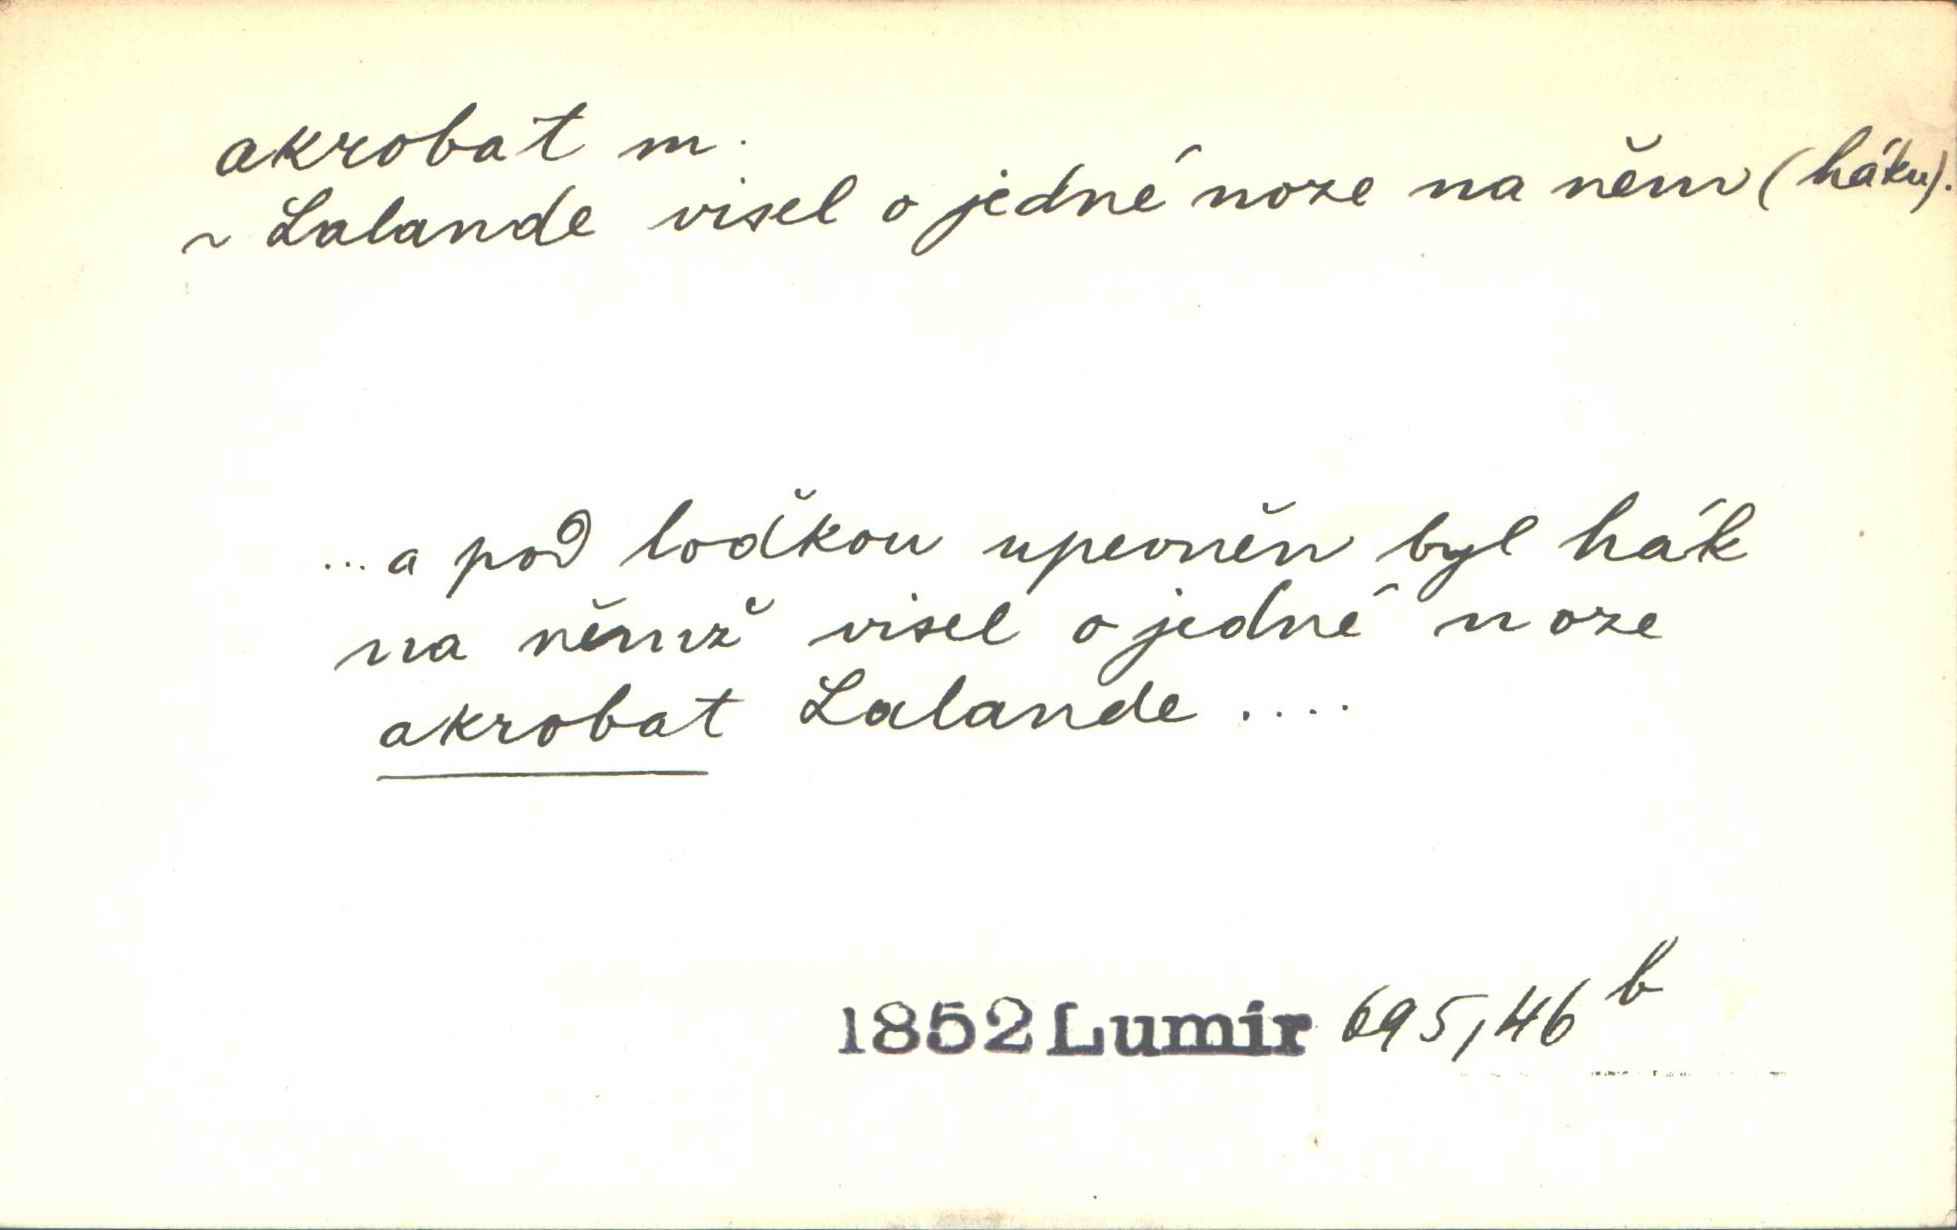 akrobat m.
~ Lalande visel o jedné noze na něm (háku).
...a pod loďkou upevněn byl hák
na němž visel o jedné noze
akrobat Lalande ....
1852 Lumír 695,46 b